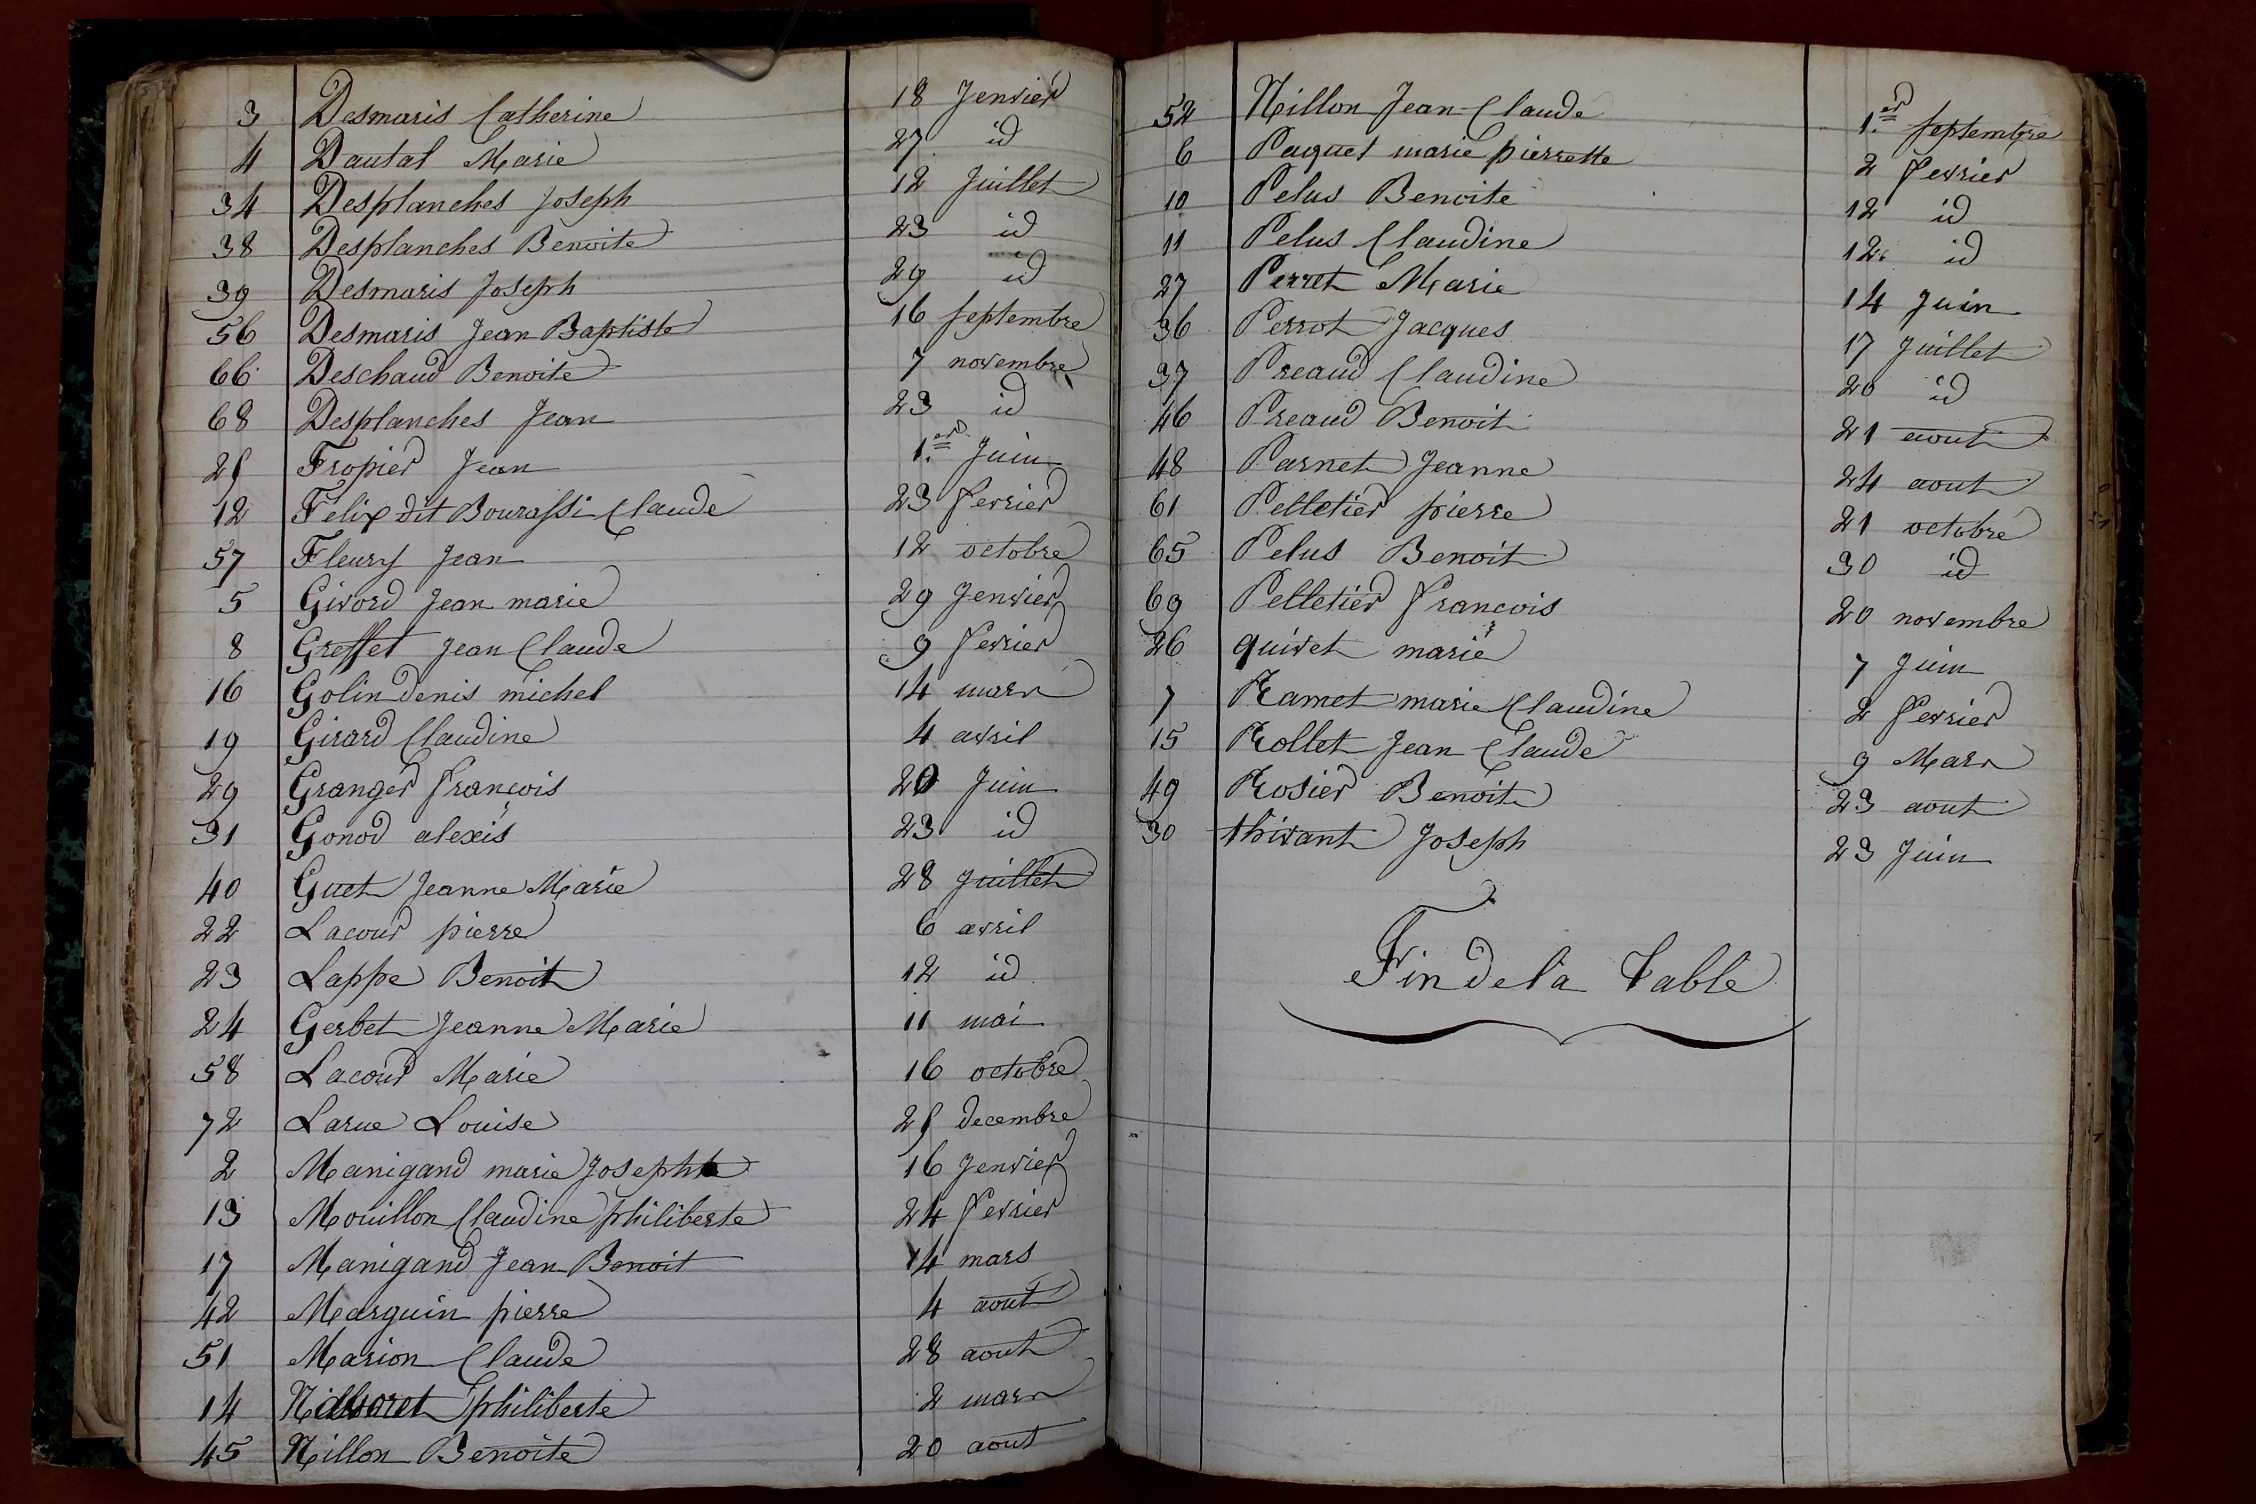 3 Desmaris Catherine 18 Jenvier
4 Dautal Marie 27 id
34 Desplanches Joseph 12 Juillet
38 Desplanches Benoite 23 id
39 Desmaris Joseph 29 id
56 Desmaris Jean Baptiste 16 septembre
66 Deschaud Benoite 7 novembre
68 Desplanches Jean 23 id
25 Fropier Jean 1.er Juin
12 Felix dit Bourassi Claude 23 fevrier
57 Fleury Jean 12 octobre
5 Givord Jean marie 29 Jenvier
8 Greffet Jean Claude 9 fevrier
16 Golin denis michel 14 mars
19 Girard Claudine 4 avril
29 Granger francois 20 Juin
31 Gonod alexis 23 id
40 Guet Jeanne Marie 28 Juillet
22 Lacour pierre 6 avril
23 Lappe Benoit 12 id
24 Gerbet Jeanne Marie 11 mai
58 Lacour Marie 16 octobre
72 Larue Louise 25 decembre
2 Manigand marie Josephte 16 Jenvier
13 Mouillon Claudine philiberte 24 fevrier
17 Manigand Jean Benoit 14 mars
42 Marguin pierre 4 aout
51 Marion Claude 28 aout
14 philiberte 2 mars
45 Nillon Benoite 20 aout
52 Nillon Jean Claude 1.er septembre
6 Paquet marie pierrette 2 fevrier
10 Pelus Benoite 12 id
11 Pelus Claudine 12 id
27 Perret Marie 14 Juin
36 Perrot Jacques 17 Juillet
37 Preaud Claudine 20 id
46 Preaud Benoit 21 aout
48 Parnet Jeanne 24 aout
61 Pelletier pierre 21 octobre
65 Pelus Benoit 30 id
69 Pelletier francois 20 novembre
26 quivet marie 7 Juin
7 Ramet marie Claudine 2 fevrier
15 Rollet Jean Claude 9 Mars
49 Rosier Benoit 23 aout
30 thivant Joseph 23 Juin
Fin de la Table